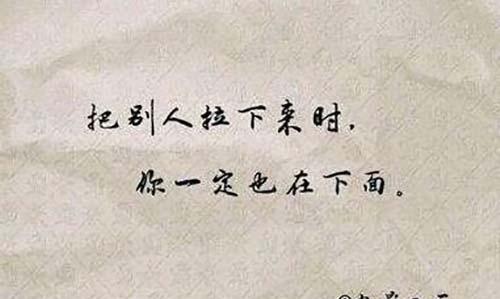 把别人拉下来时，
你一定也在下面。